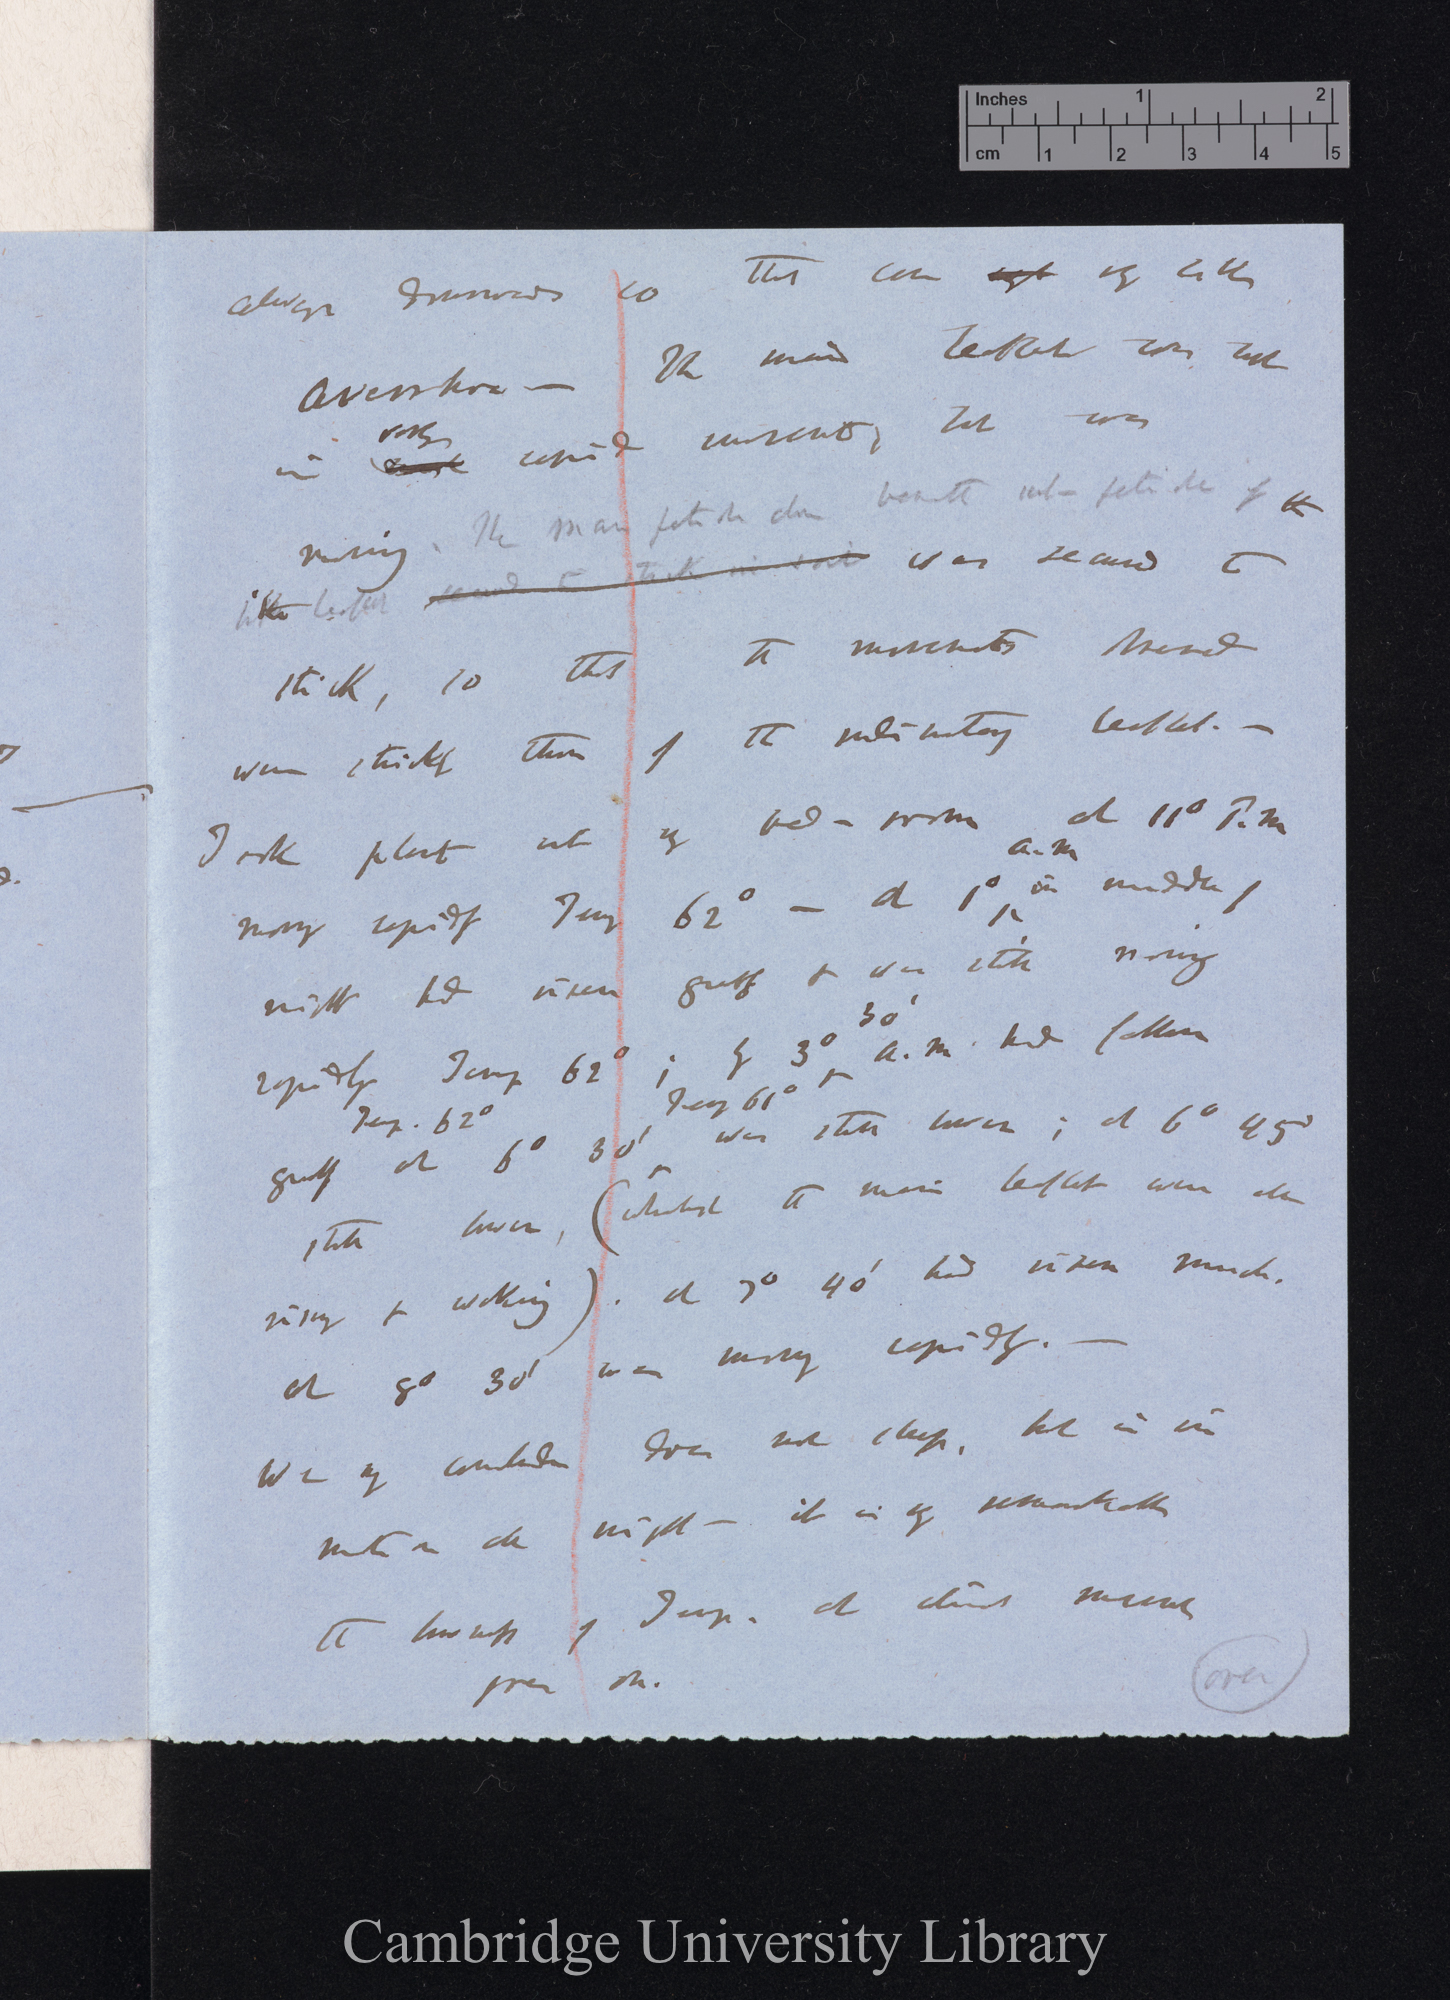 Inches 1 2
cm 1 2 3 4 5
always downwards so that
Averrhoa — The main leaflet was not
in very rapid movement, but was
moving. The main petiole close beneath sub-petiole of the
little leaflet was secured to
stick, so that the movements traced
were strictly those of the rudimentary leaflet. —
I took plant into my bed-room at 11° P.m
moving rapidly Temp 62° — at 1° a.m in middle of
night had risen greatly & was still moving
rapidly Temp 62°; by 3° 30' a.m. had fallen
Temp. 62° Temp 61° &
greatly at 6° 30' was still lower; at 6° 45'
still lower, (whilst the main leaflet were also
rising & waking). at 7° 40' had risen much.
at 8° 30' was moving rapidly. —
We may conclude does not sleep, but is in
motion all night — it is
the lowness of Temp. at which movement
goes on.
over
Cambridge University Library